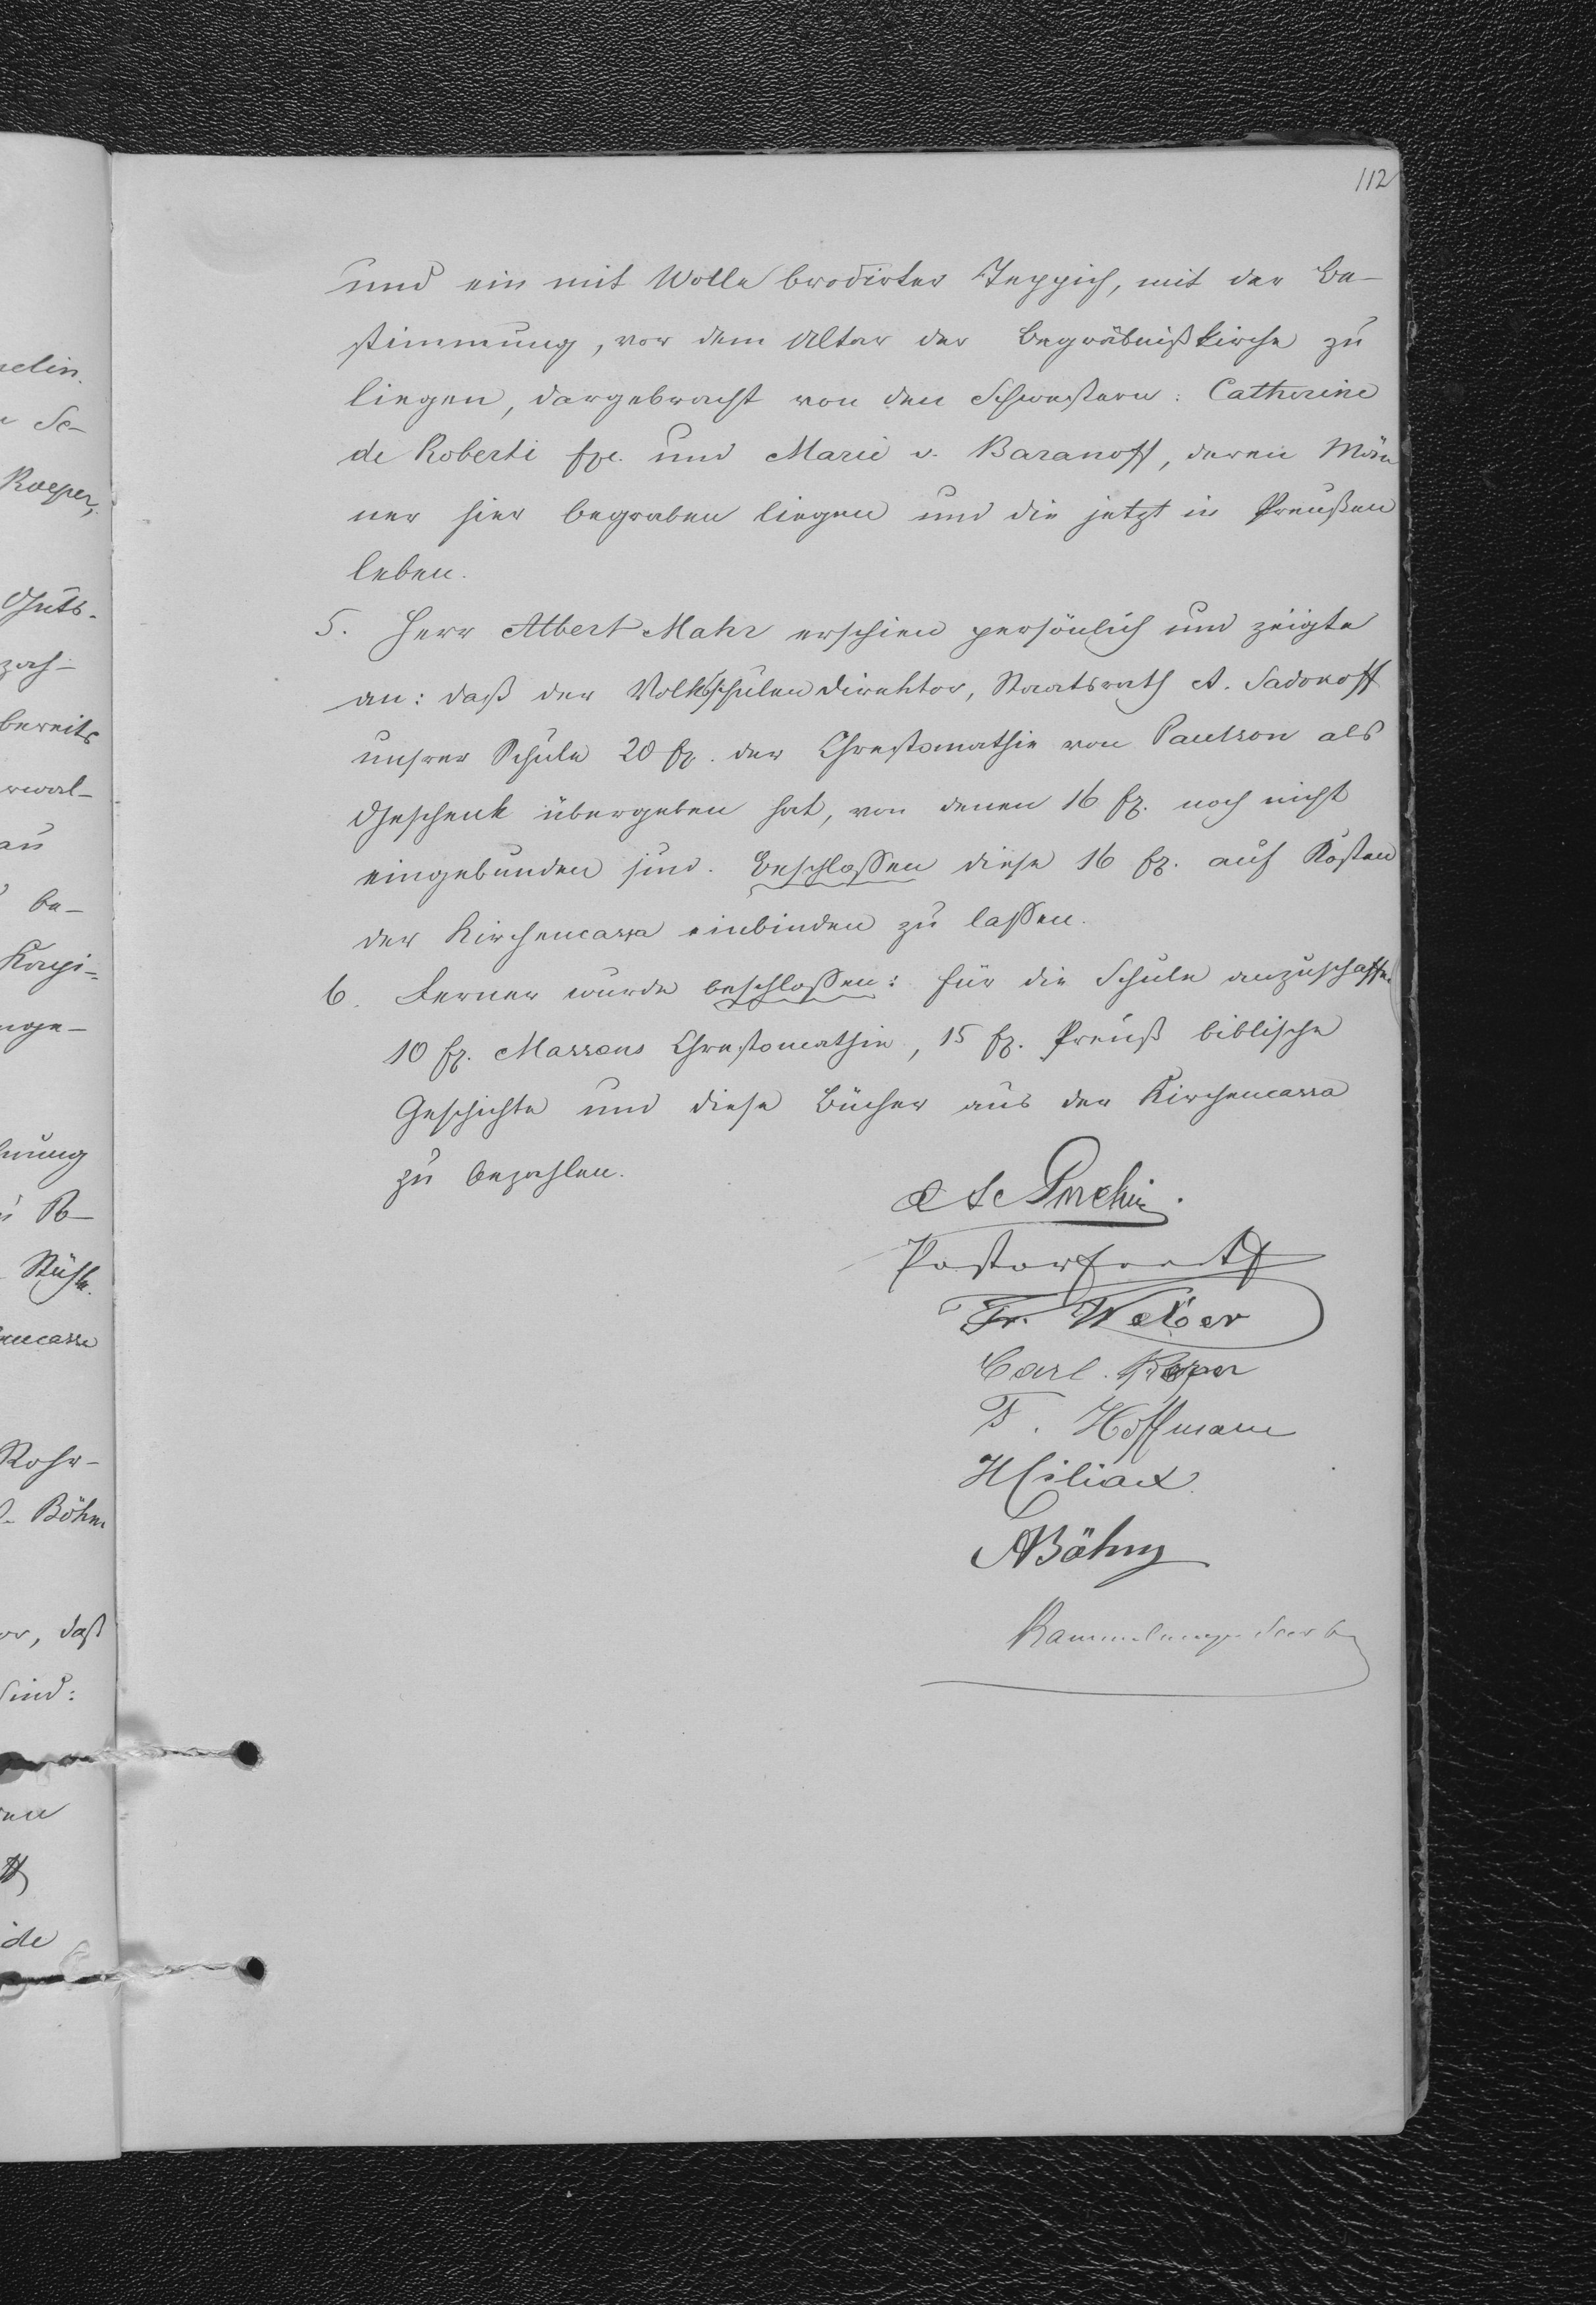 112
und ein mit Wolle brodirter Teppich, mit der Be-
stimmung, vor dem Altar der Begräbnißkirche zu
liegen, dargebracht von den Schwestern: Catherine
de Roberti und Marie v. Baranoff, deren Män
ner hier begraben liegen und die jetzt in Preußen
leben.
5. Herr Albert Mahr erschien persönlich und zeigte
an: daß der Volksschulendirektor, Staatsrath A. Sadonoff
unsrer Schule 20 Ex. der Chrestomathie von Paulson als
Geschenk übergeben hat, von denen 16 Ex. noch nicht
eingebunden sind. Beschlossen diese 16 Ex. auf Kosten
der Kirchencassa einbinden zu lassen.
6. Ferner wurde beschlossen: für die Schule anzuschaffen
10 Ex. Massons Chrestomathie, 15 Ex. Preuß biblische
Geschichte und diese Bücher aus der Kirchencassa
zu bezahlen.
Pastor
Fr. Weber
Carl. Roeper
F. Hoffmann
HCiliax
ABöhm
elin.
Se-
Roeper,
Guts-
zah-
bereits
rwal-
be-
Kirchi-
nge-
Stühle.
encasse
Rohr-
Böhm
or, daß
sind: